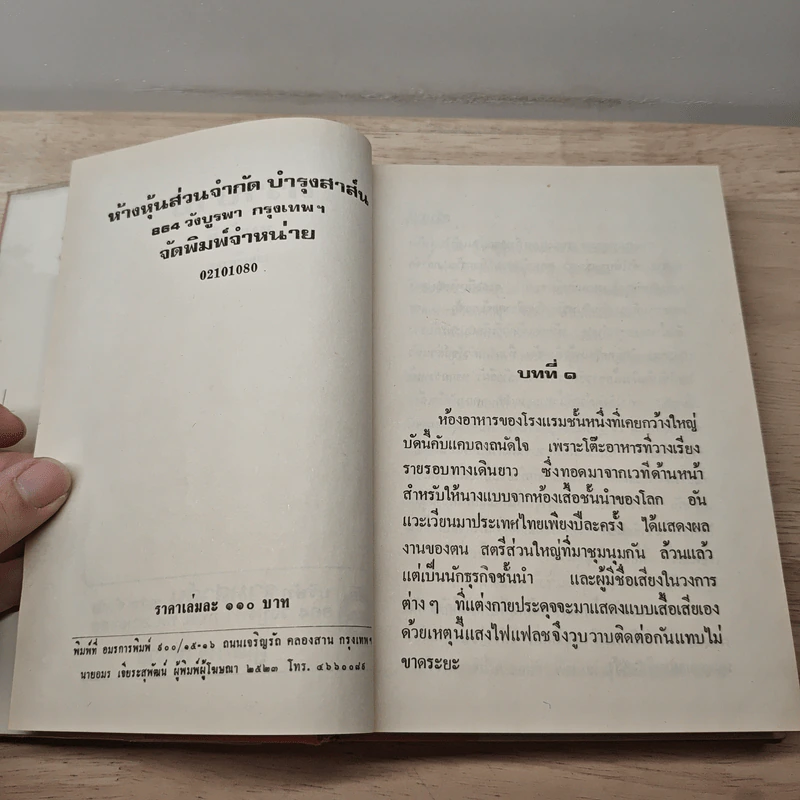 ห้างหุ้นส่วนจำกัด บำรุงสาส์น
864 วังบูรพา กรุงเทพฯ
จัดพิมพ์จำหน่าย
02101080
ราคาเล่มละ ๑๑๐ บาท
พิมพ์ที่ อมรการพิมพ์ ๙๐๐/๑๕-๑๖ ถนนเจริญรัถ คลองสาน กรุงเทพฯ
นายอมร เจียระสุพัฒน์ ผู้พิมพ์ผู้โฆษณา ๒๕๒๓ โทร. ๔๖๖๐๐๘๙
บทที่ ๑
ห้องอาหารของโรงแรมชั้นหนึ่งที่เคยกว้างใหญ่
บัดนี้คับแคบลงถนัดใจ เพราะโต๊ะอาหารที่วางเรียง
รายรอบทางเดินยาว ซึ่งทอดมาจากเวทีด้านหน้า
สำหรับให้นางแบบจากห้องเสื้อชั้นนำของโลก อัน
แวะเวียนมาประเทศไทยเพียงปีละครั้ง ได้แสดงผล
งานของตน สตรีส่วนใหญ่ที่มาชุมนุมกัน ล้วนแล้ว
แต่เป็นนักธุรกิจชั้นนำ และผู้มีชื่อเสียงในวงการ
ต่างๆ ที่แต่งกายประดุจจะมาแสดงแบบเสื้อเสียเอง
ด้วยเหตุนี้แสงไฟแฟลชจึงวูบวาบติดต่อกันแทบไม่
ขาดระยะ